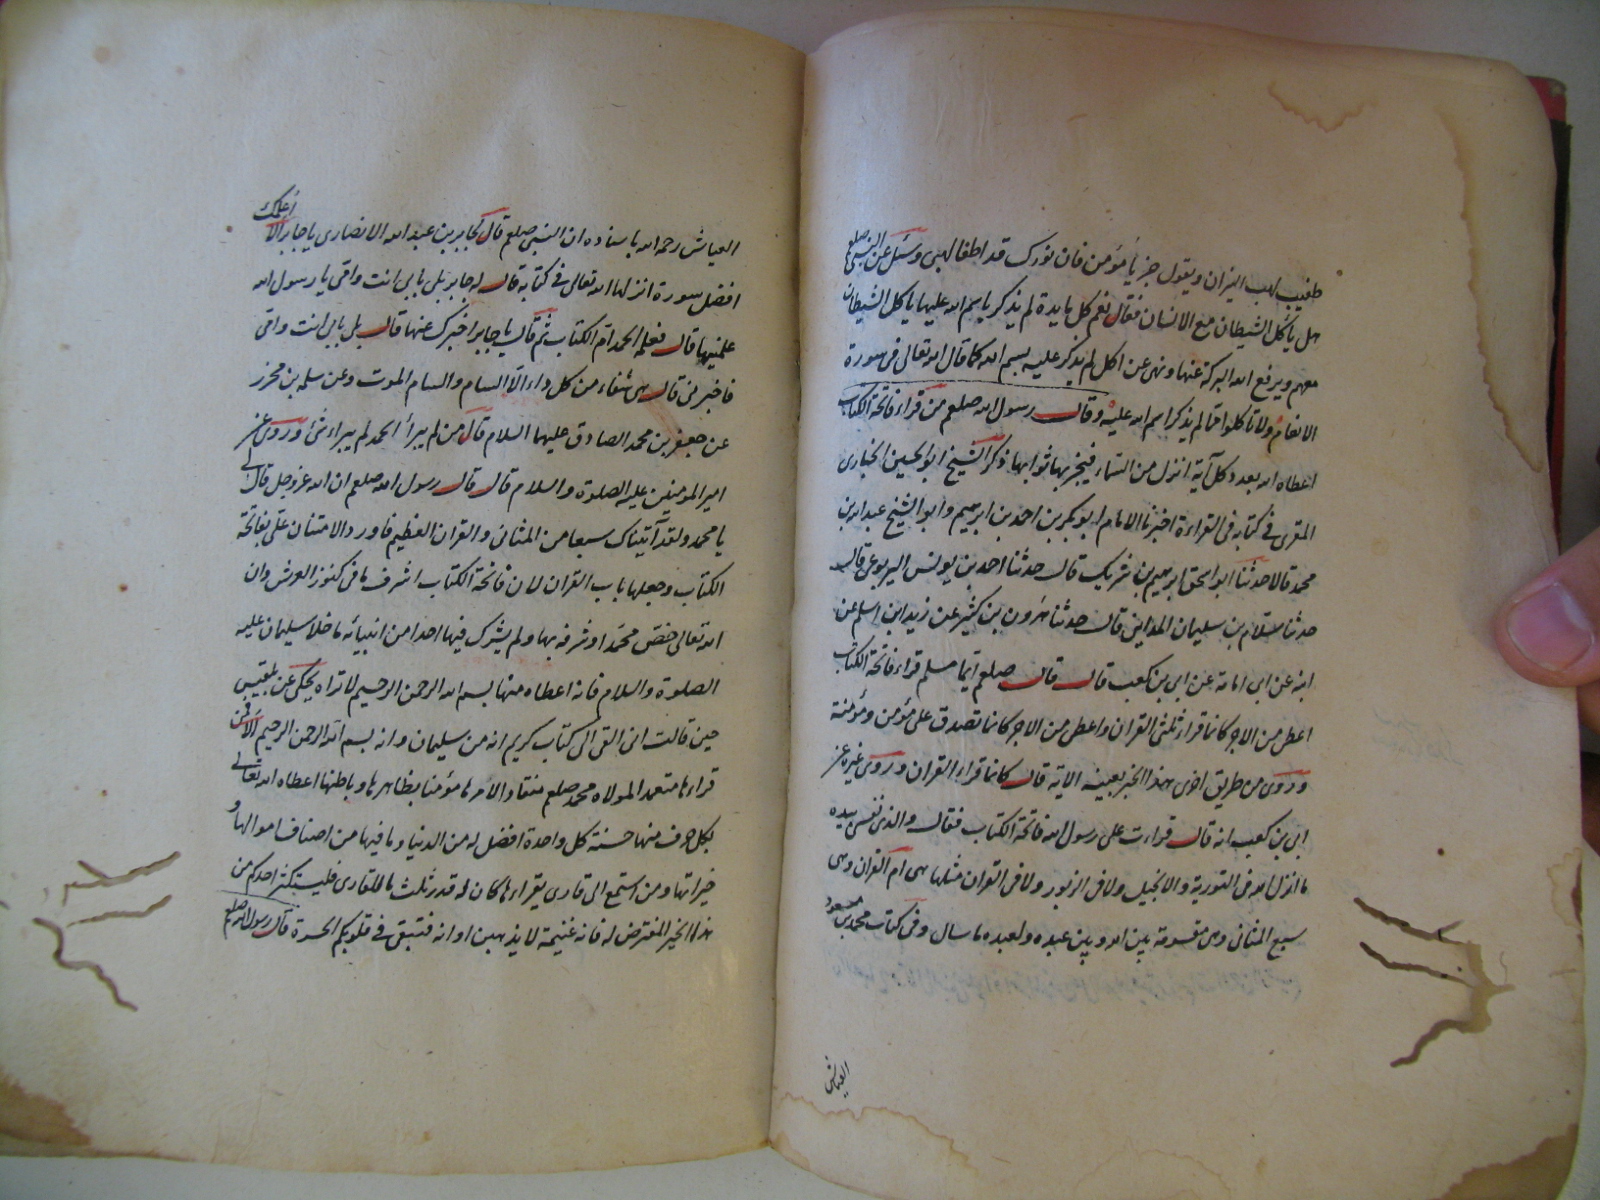 طفیت لهب النیران ویقول جز یا مؤمن فان نورک قد اطفا لهبی وسئل عن النبی صلعم
هل یأکل الشیطان مع الانسان فقال نعم کل مایدة لم یذکر بسم الله علیها یاکل الشیطان
معهم ویرفع الله البرکة عنها ونهی عن اکل لم یذکر علیه بسم الله کما قال الله تعالی فی سورة
الانعام ولا تاکلوا مما لم یذکر اسم الله علیه وقال رسول الله صلعم من قراء فاتحة الکتاب
اعطاه الله بعدد کل آیة انزل من السماء فیجز بها ثوابها ذکر الشیخ ابو الحسین الخبازی
المقری فی کتابه فی القراءة اخبرنا الامام ابو بکر بن احمد بن ابرهیم وابو الشیخ عبد الله بن
محمد قالا حدثنا ابو اسحق ابرهیم بن شریک قال حدثنا احمد بن یونس الیربوعی قال
حدثنا سلام بن سلیمان المداینی قال حدثنا هرون بن کثیر عن زید ابن اسلم عن
ابیه عن ابی امامة عن ابی بن کعب قال قال صلعم ایما مسلم قراء فاتحة الکتاب
اعطی من الاجر کانما قراء ثلثی القران واعطی من الاجر کانما تصدق علی مؤمن ومؤمنة
وروی من طریق اخری هذا الخبر بعینه الا انه قال کانما قراء القران وروی غیره عن
ابی بن کعب انه قال قراءت علی رسول الله فاتحة الکتاب فقال والذی نفسی بیده
ما انزل الله فی التوریة والانجیل ولا فی الزبور ولا فی القران مثلها هی ام القران وهی
سبع المثانی وهی مقسومة بین الله وبین عبده ولعبده ما سال وفی کتاب محمد بن مسعود
العیاشی
العیاشی رحمه الله باسناده ان النبی صلعم قال لجابر بن عبد الله الانصاری یا جابر الا اعلمک
افضل سورة انزلها الله تعالی فی کتابه قال له جابر بلی بابی انت وامی یا رسول الله
علمنیها قال فعلمه الحمد ام الکتاب ثم قال یا جابر الا اخبرک عنها قال بلی بابی انت وامی
فاخبرنی قال هی شفاء من کل داء الا السام والسام الموت وعن سلمه بن محرز
عن جعفر بن محمد الصادق علیهما السلام قال من لم یبرأ الحمد لم یبراءه شئ وروی عن
امیر المومنین علیه الصلوة والسلام قال قال رسول الله صلعم ان الله عز وجل قال لی
یا محمد ولقد آتیناک سبعا من المثانی والقران العظیم فاورد الامتنان علی بفاتحة
الکتاب وجعلها باب القران لان فاتحة الکتاب اشرف ما فی کنوز العرش وان
الله تعالی خص محمدا وشرفه بها ولم یشرک فیها احدا من انبیائه ما خلا سلیمان علیه
الصلوة والسلام فانه اعطاه منها بسم الله الرحمن الرحیم الا تراه یحکی عن بلقیس
حین قالت انی القی الی کتاب کریم انه من سلیمان وانه بسم الله الرحمن الرحیم الا فمن
قراءها متعمدا لمولاه محمد صلعم منقادا لامرها مؤمنا بظاهرها وباطنها اعطاه الله تعالی
بکل حرف منها حسنة کل واحدة افضل له من الدنیا وما فیها من اصناف اموالها و
خیراتها ومن استمع الی قاری یقراءها کان له قدر ثلث ما للقاری فلیستکثر احدکم من
هذا الخیر المفترض له فانه غنیمة لا یذهبن اوانه فتبقی فی قلوبکم الحسرة قال رسول الله صلعم